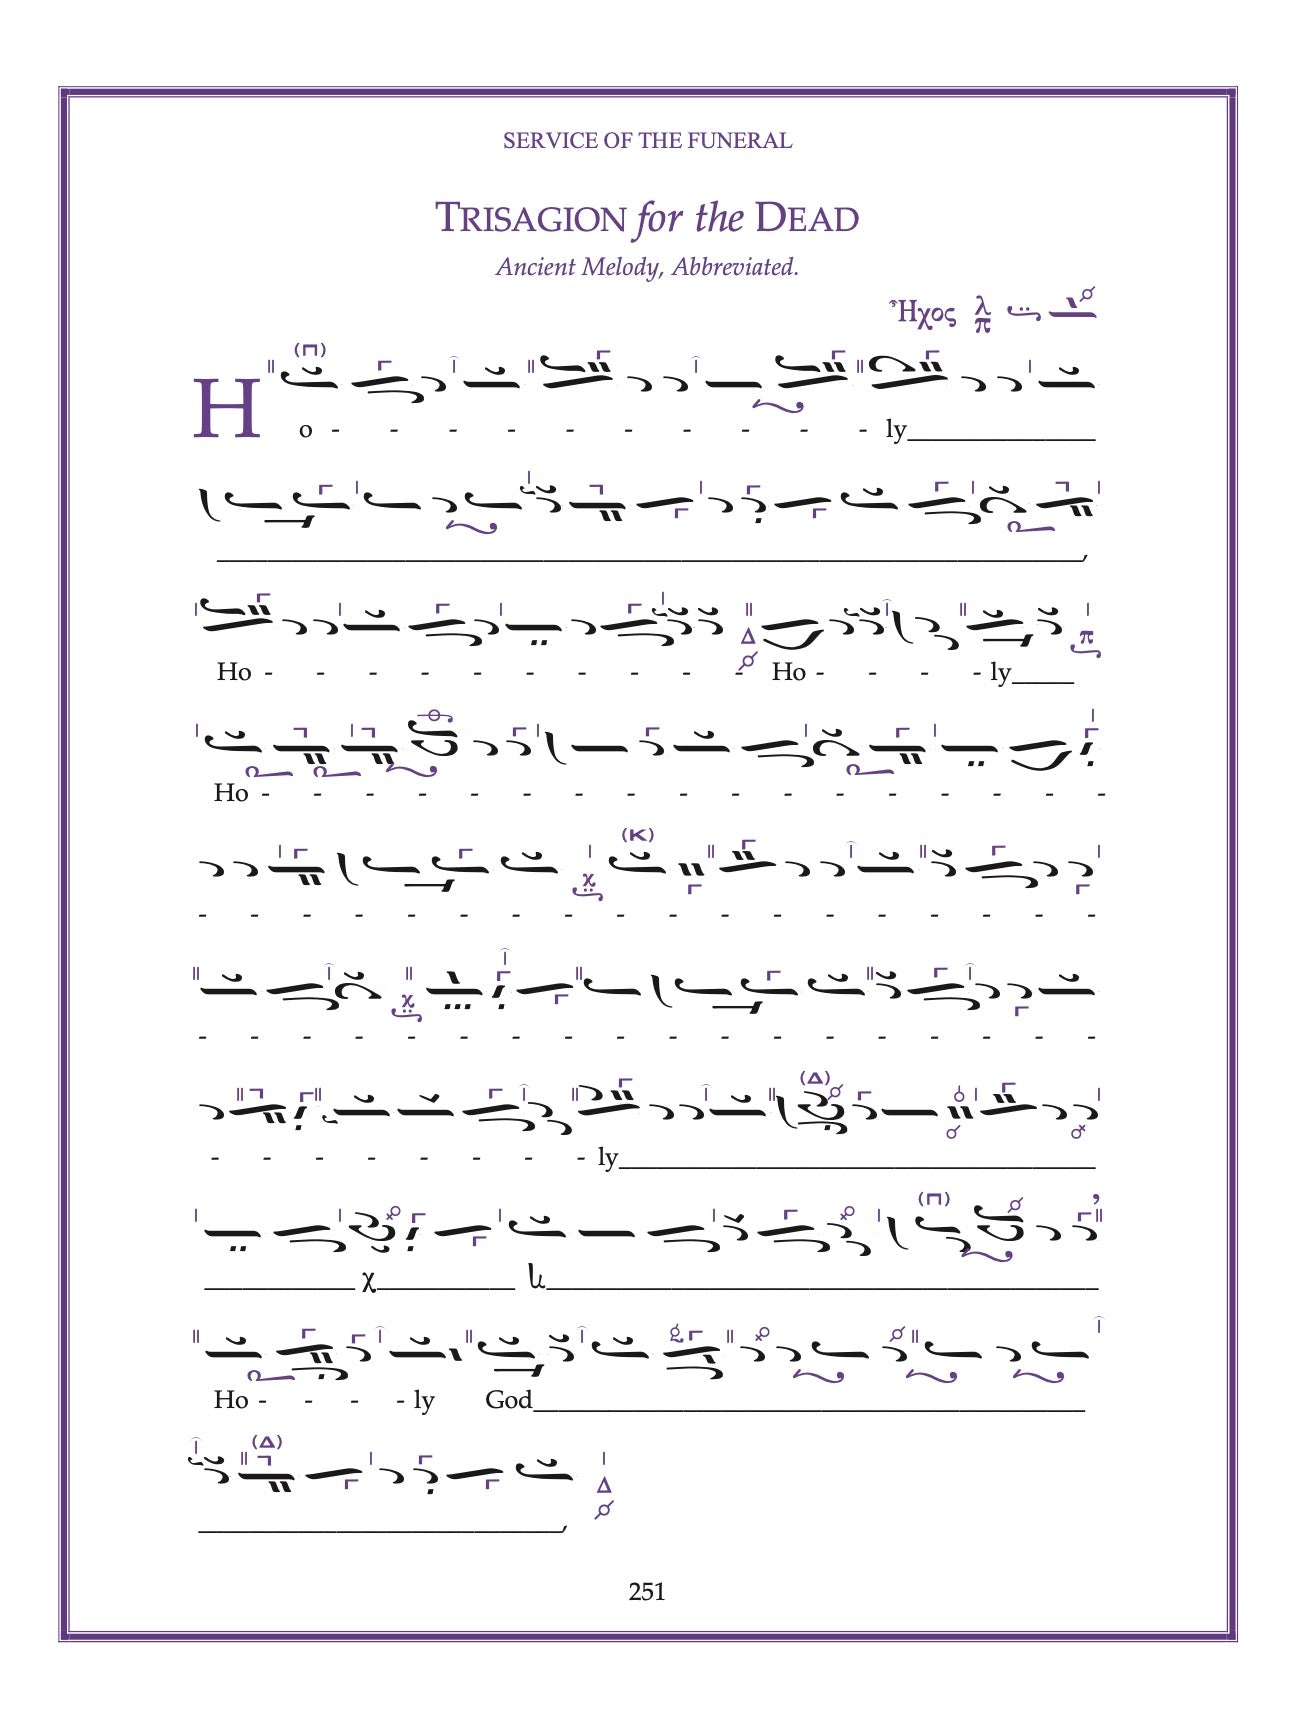 SERVICE OF THE FUNERAL
TRISAGION for the DEAD
Ancient Melody, Abbreviated.
Ἦχος λ π
(Π)
Ho - - - - - - - - - - ly_______________
_______________,
Ho - - - - - - - - - - Ho - - - - ly_____
Δ
π
Ho - - - - - - - - - - - - - - - - -
(K)
χ
- - - - - - - - - - - - - - - - - -
χ
- - - - - - - - - - - - - - - - - -
(Δ)
- - - - - - - - ly_______________
(Π)
____________ χ___________ ι_______________
Ho - - - - ly God_______________
(Δ)
Δ
_______________,
251